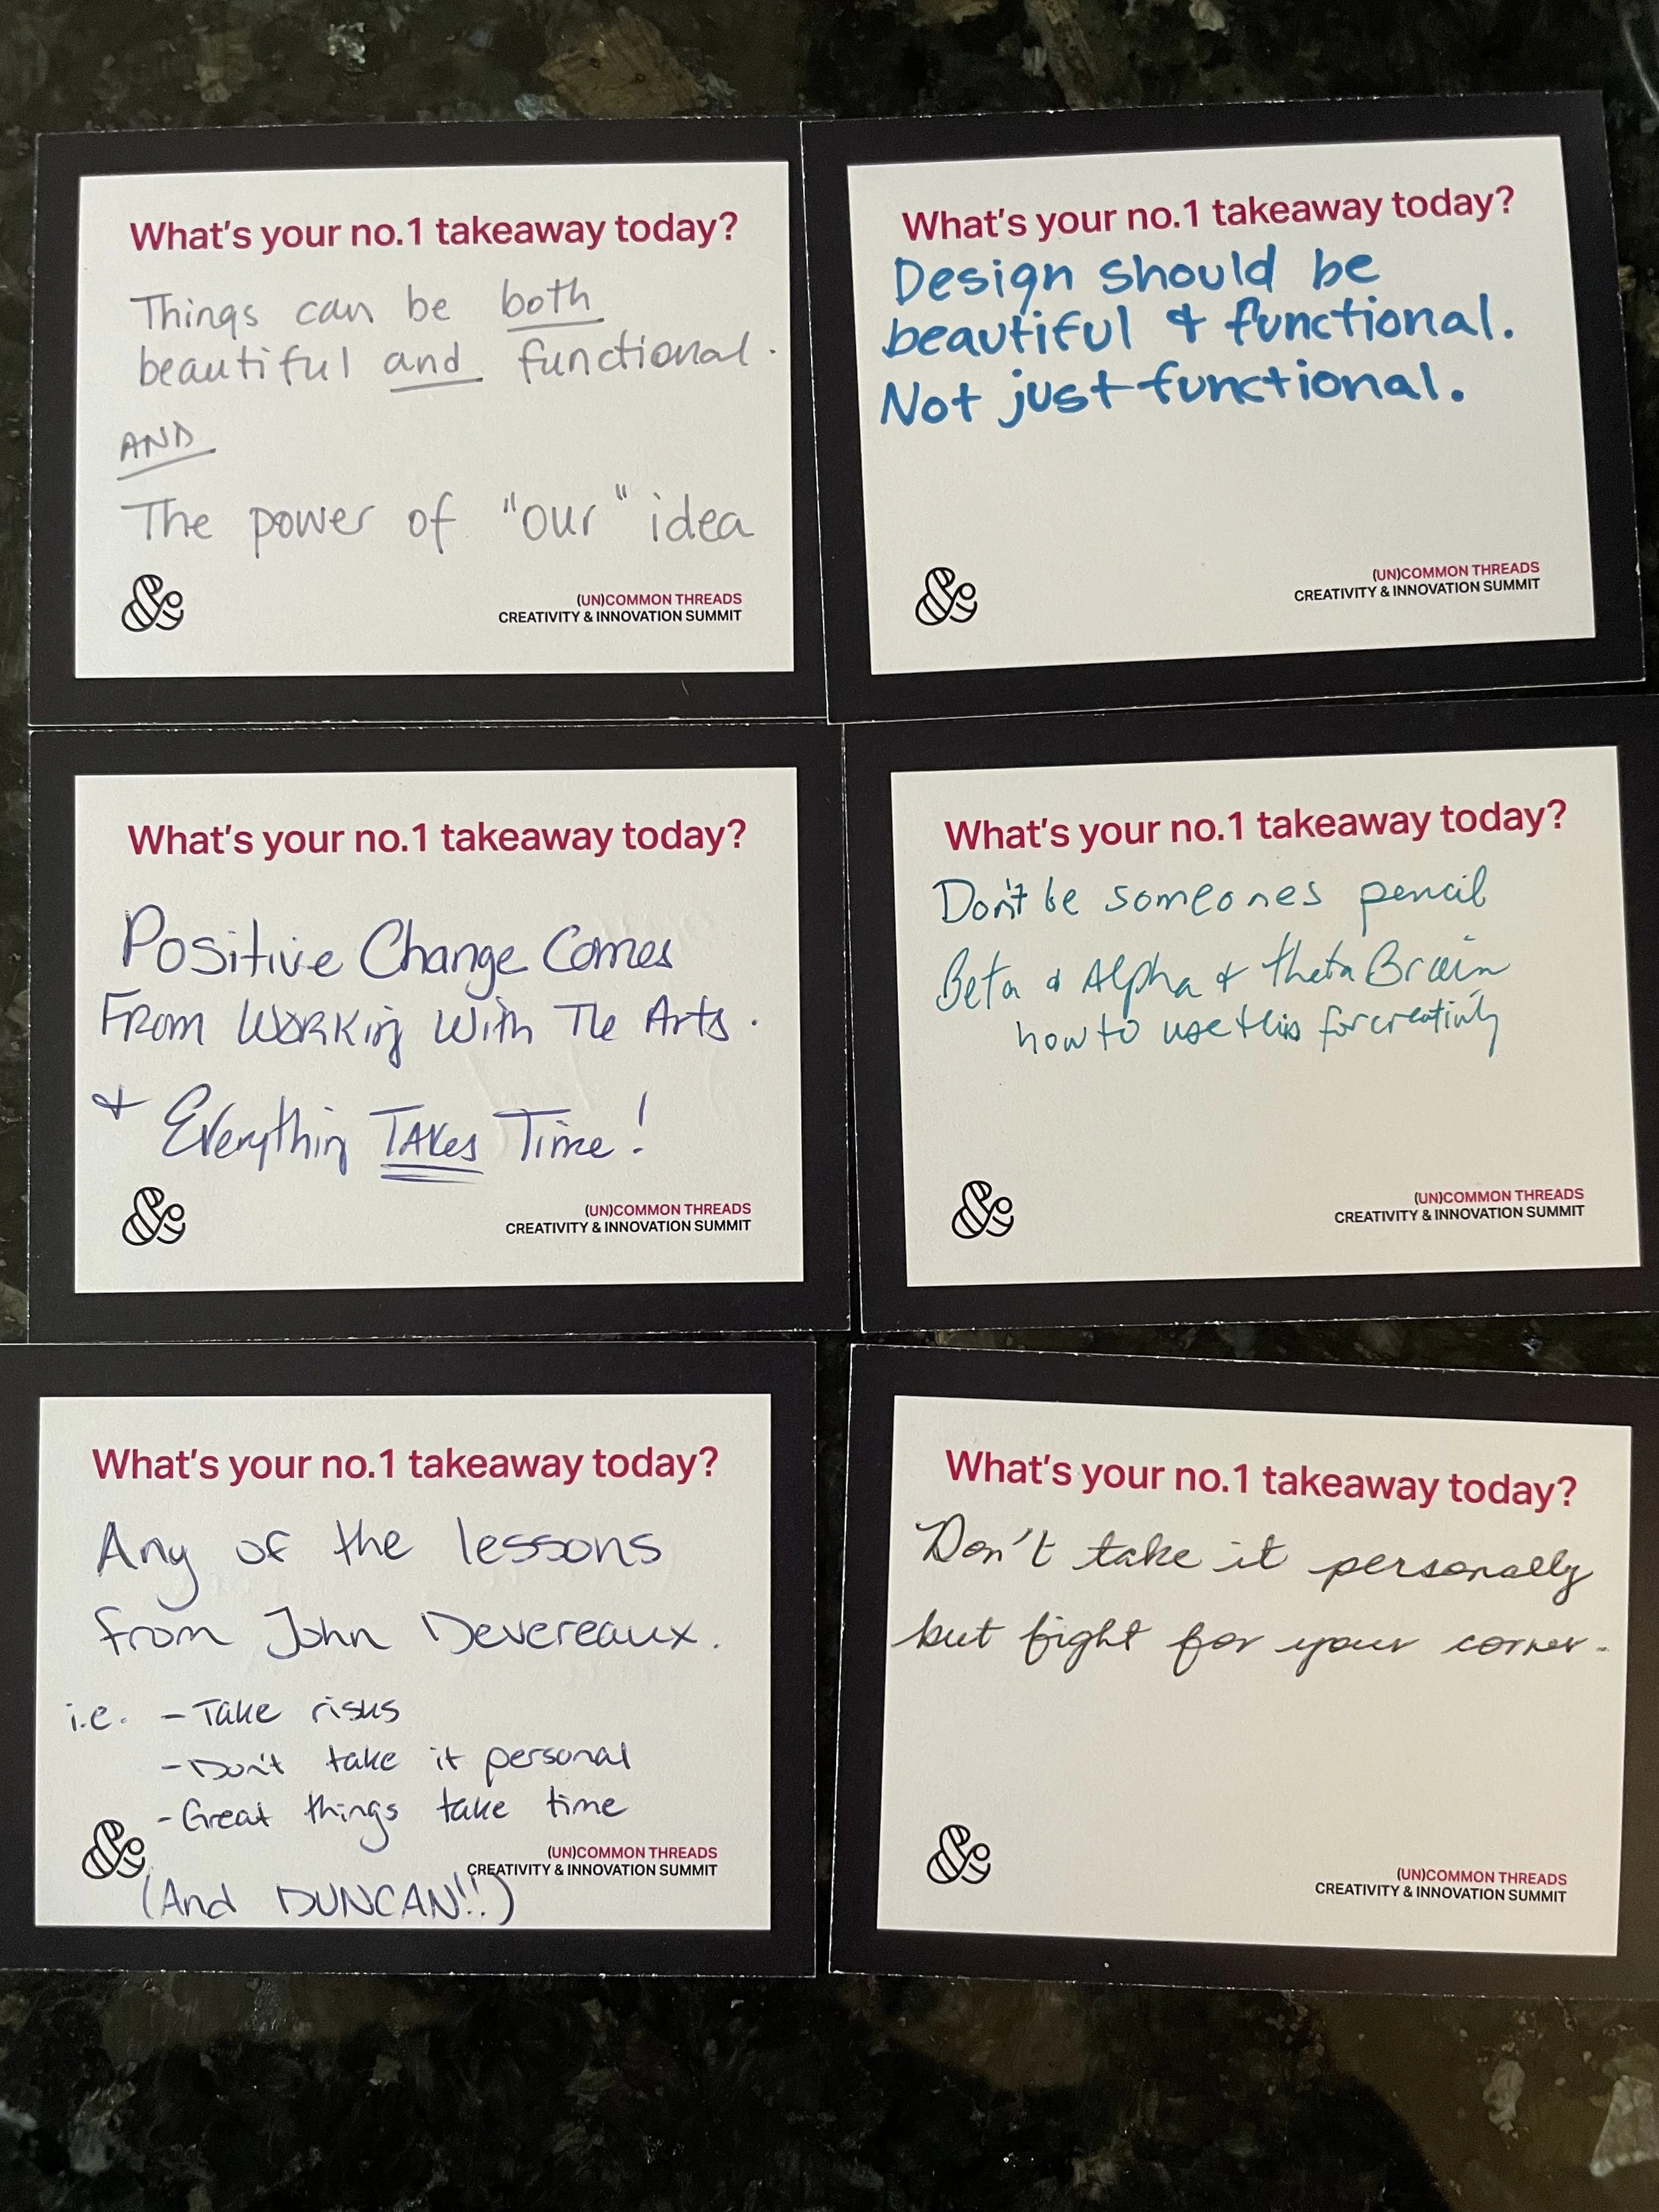 What's your no.1 takeaway today?
Things can be both
beautiful and functional.
AND
The power of "our" idea
&
(UN)COMMON THREADS
CREATIVITY & INNOVATION SUMMIT
What's your no.1 takeaway today?
Design should be
beautiful & functional.
Not just functional.
&
(UN)COMMON THREADS
CREATIVITY & INNOVATION SUMMIT
What's your no.1 takeaway today?
Positive Change Comes
From Working With The Arts.
& Everything Takes Time!
&
(UN)COMMON THREADS
CREATIVITY & INNOVATION SUMMIT
What's your no.1 takeaway today?
Don't be someones pencil
Beta & Alpha & theta Brain
how to use this for
&
(UN)COMMON THREADS
CREATIVITY & INNOVATION SUMMIT
What's your no.1 takeaway today?
Any of the lessons
from John Devereaux.
i.e. - Take risks
- Don't take it personal
- Great things take time
&
(UN)COMMON THREADS
CREATIVITY & INNOVATION SUMMIT
(And DUNCAN!!)
What's your no.1 takeaway today?
Don't take it personally
but fight for your corner.
&
(UN)COMMON THREADS
CREATIVITY & INNOVATION SUMMIT